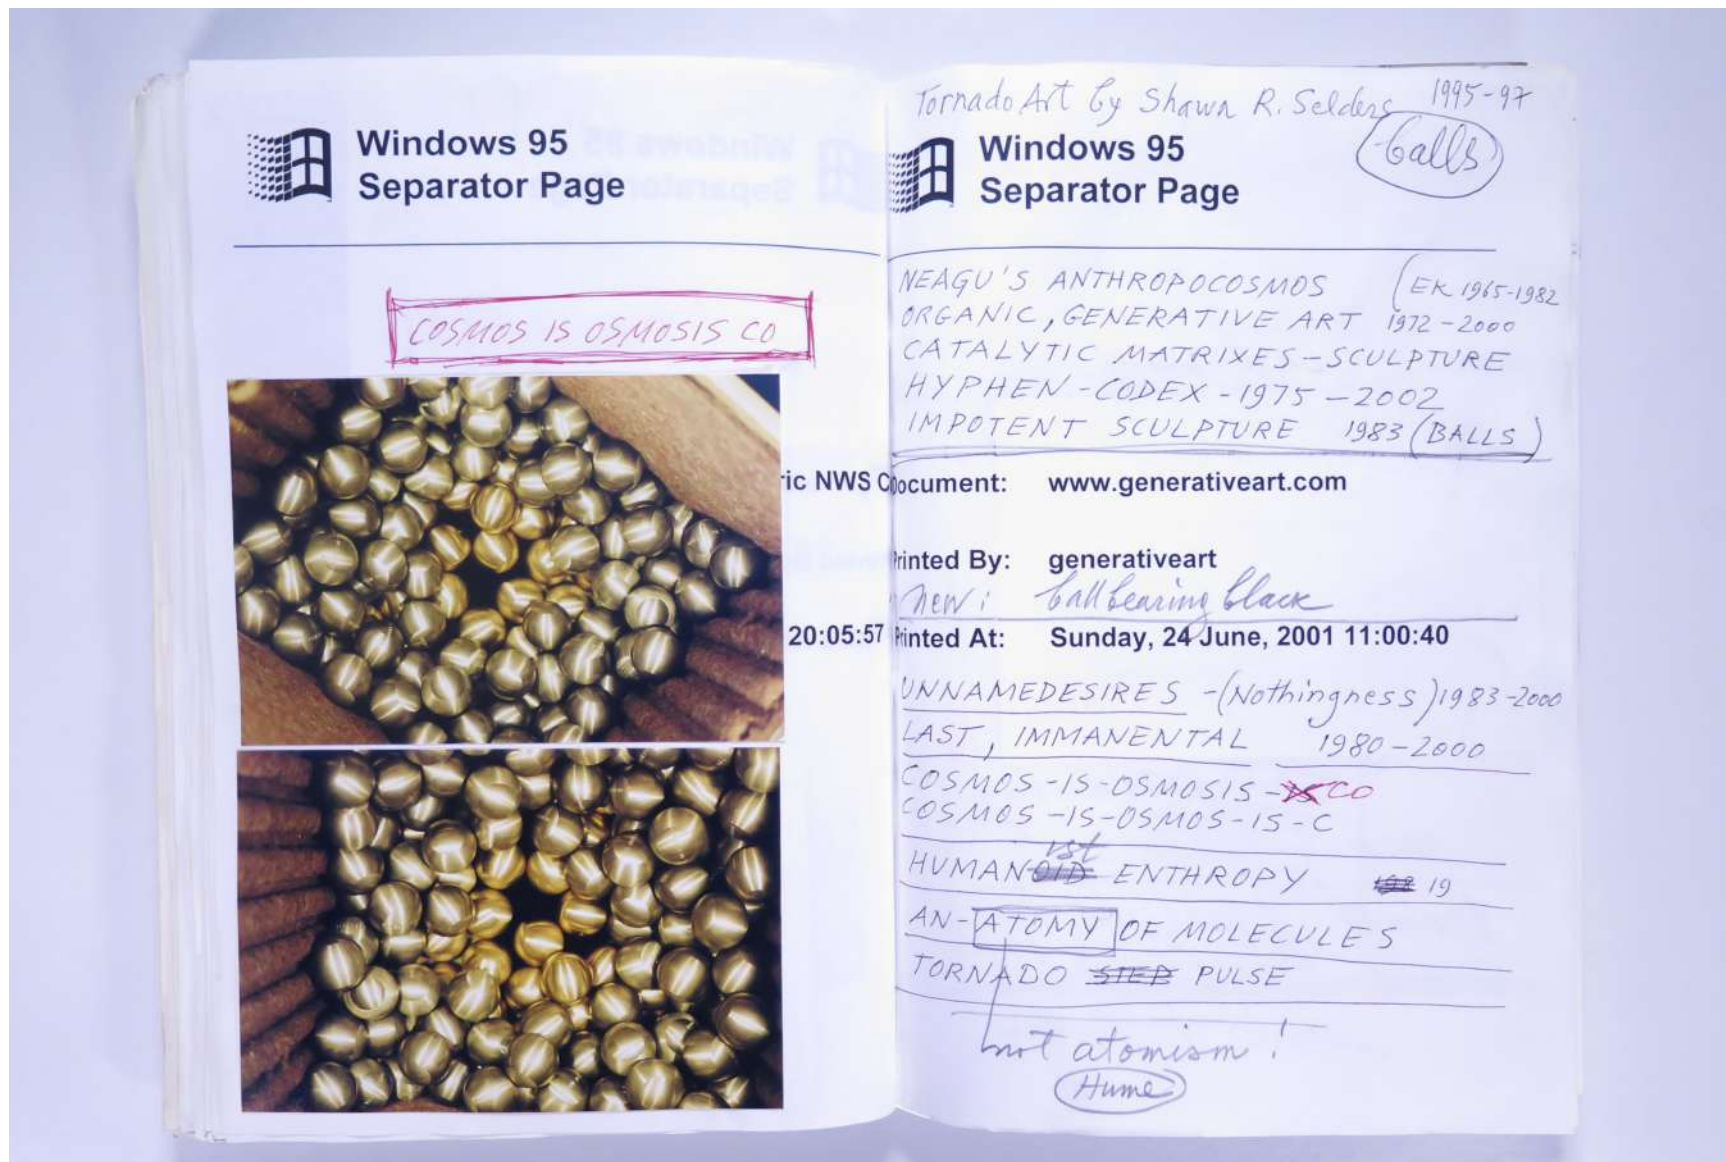 Windows 95
Separator Page
COSMOS IS OSMOSIS CO
ric NWS C
20:05:57
Tornado Art by Shawn R. Selders 1995-97
balls
Windows 95
Separator Page
NEAGU'S ANTHROPOCOSMOS (EK 1965-1982
ORGANIC, GENERATIVE ART 1972-2000
CATALYTIC MATRIXES-SCULPTURE
HYPHEN-CODEX-1975-2002
IMPOTENT SCULPTURE 1983 (BALLS)
Document: www.generativeart.com
Printed By: generativeart
new: ballbearing black
Printed At: Sunday, 24 June, 2001 11:00:40
UNNAMEDESIRES -(Nothingness) 1983-2000
LAST, IMMANENTAL 1980-2000
COSMOS-IS-OSMOSIS-IS CO
COSMOS-IS-OSMOS-IS-C
ist
HUMANOID ENTHROPY 198 19
AN-ATOMY OF MOLECULES
TORNADO STEP PULSE
not atomism!
Hume